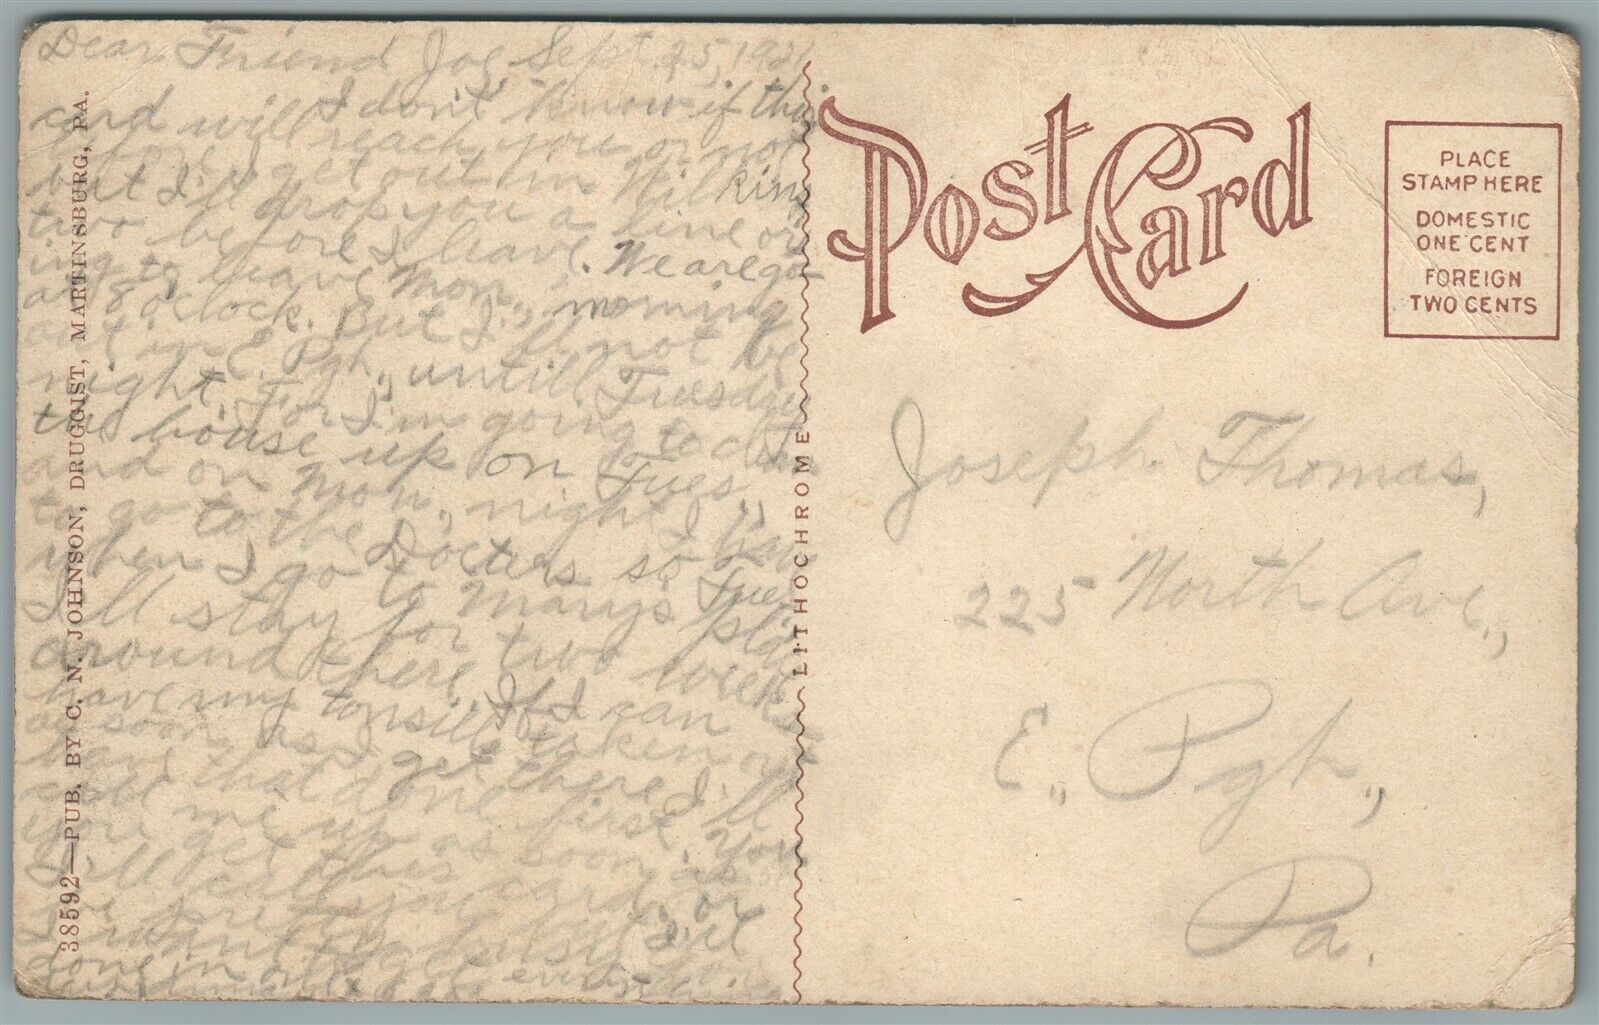 Dear Friend Joe, Sept. 25, 1921
I don't know if this
card will reach you or not
before I get out in Wilkins
but I'll drop you a line or
two before I leave. We are go-
ing to leave Mon., morning
at 8 o'clock. But I'll not be
out in E. Pgh., untill Tuesday
night. For I'm going to clean
the house up on Tues.,
and on Mon., night I have
to go to the Docters so Tues
when I go to Mary's place
I'll stay for two weeks
around there. If I can
have my tonsills taken out
as soon as I get there I'll
have that done first. You
call me up as soon as
you get this card, or
I'll call you but I'll
be pretty busy
I want to get everything
done in
38592—PUB. BY C. N. JOHNSON, DRUGGIST, MARTINSBURG, PA.
LITHOCHROME
Post Card
PLACE
STAMP HERE
DOMESTIC
ONE CENT
FOREIGN
TWO CENTS
Joseph Thomas,
225 North Ave.,
E., Pgh.,
Pa.